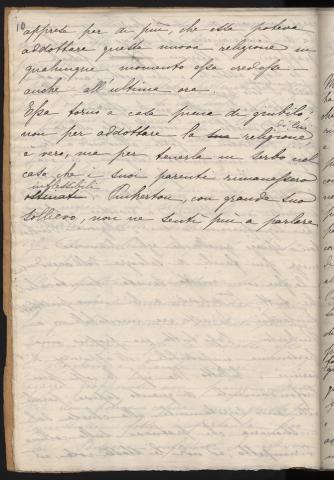 10
apprese per di più, che essa poteva
addottare questa nuova religione in
qualunque momento essa credesse –
anche all'ultima ora.
Essa tornò a casa piena di giubilo –
non per addottare la sua religione di lui
è vero, ma per tenerla in serbo nel
caso che i suoi parenti rimanessero
inflessibili
ostinati Pinkerton, con grande suo
sollievo, non ne sentì più a parlare